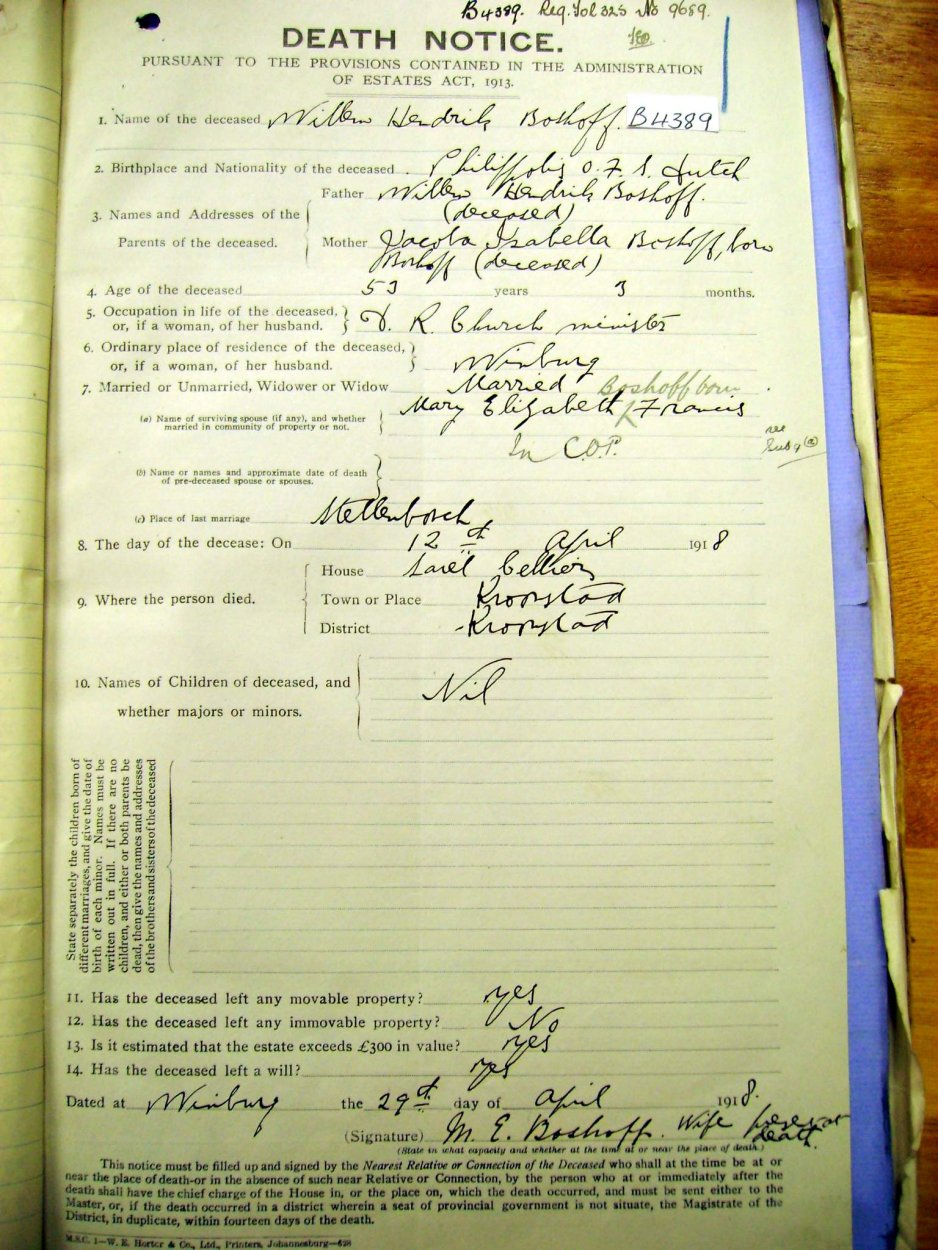 B4389. Reg. Fol 325 No 9689.
DEATH NOTICE.
PURSUANT TO THE PROVISIONS CONTAINED IN THE ADMINISTRATION
OF ESTATES ACT, 1913.
1. Name of the deceased Willem Hendrik Boshoff. B4389
2. Birthplace and Nationality of the deceased . Philippolis O. F. S. Dutch
3. Names and Addresses of the
Parents of the deceased.
Father Willem Hendrik Boshoff.
(deceased)
Mother Jacoba Isabella Boshoff, born
Boshoff (deceased)
4. Age of the deceased 53 years 3 months.
5. Occupation in life of the deceased,
or, if a woman, of her husband. } D. R. Church minister
6. Ordinary place of residence of the deceased,
or, if a woman, of her husband. } Winburg
7. Married or Unmarried, Widower or Widow Married Boshoff born
(a) Name of surviving spouse (if any), and whether
married in community of property or not. } Mary Elizabeth Francis
In C.O.P. see
(b) Name or names and approximate date of death
of pre-deceased spouse or spouses.
(c) Place of last marriage Stellenbosch
8. The day of the decease: On 12th April 1918
9. Where the person died.
House Sarel Celliers
Town or Place Kroonstad
District Kroonstad
10. Names of Children of deceased, and
whether majors or minors.
Nil
State separately the children born of
different marriages, and give the date of
birth of each minor. Names must be
written out in full. If there are no
children, and either or both parents be
dead, then give the names and addresses
of the brothers and sisters of the deceased
11. Has the deceased left any movable property? yes
12. Has the deceased left any immovable property? No
13. Is it estimated that the estate exceeds £300 in value? yes
14. Has the deceased left a will? yes
Dated at Winburg the 29th day of April 1918.
(Signature) M. E. Boshoff. Wife present at
death.
(State in what capacity and whether at the time at or near the place of death.)
This notice must be filled up and signed by the Nearest Relative or Connection of the Deceased who shall at the time be at or
near the place of death-or in the absence of such near Relative or Connection, by the person who at or immediately after the
death shall have the chief charge of the House in, or the place on, which the death occurred, and must be sent either to the
Master, or, if the death occurred in a district wherein a seat of provincial government is not situate, the Magistrate of the
District, in duplicate, within fourteen days of the death.
M.S.C. 1—W. E. Horter & Co., Ltd., Printers, Johannesburg—